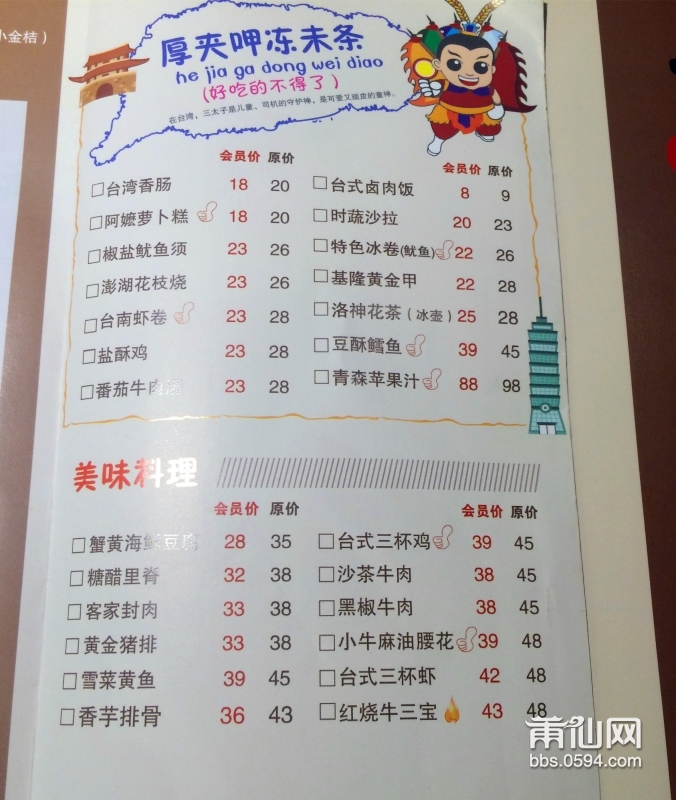 小金桔）
厚夹呷冻未条
he jia ga dong wei diao
(好吃的不得了)
在台湾，三太子是儿童、司机的守护神，是可爱又顽皮的童神。
会员价 原价
台湾香肠 18 20
阿嬷萝卜糕 18 20
椒盐鱿鱼须 23 26
澎湖花枝烧 23 26
台南虾卷 23 28
盐酥鸡 23 28
番茄牛肉 23 28
会员价 原价
台式卤肉饭 8 9
时蔬沙拉 20 23
特色冰卷(鱿鱼) 22 26
基隆黄金甲 22 28
洛神花茶（冰壶）25 28
豆酥鳕鱼 39 45
青森苹果汁 88 98
美味料理
会员价 原价
蟹黄海鲜豆腐 28 35
糖醋里脊 32 38
客家封肉 33 38
黄金猪排 33 38
雪菜黄鱼 39 45
香芋排骨 36 43
会员价 原价
台式三杯鸡 39 45
沙茶牛肉 38 45
黑椒牛肉 38 45
小牛麻油腰花 39 48
台式三杯虾 42 48
红烧牛三宝 43 48
莆仙网
bbs.0594.com